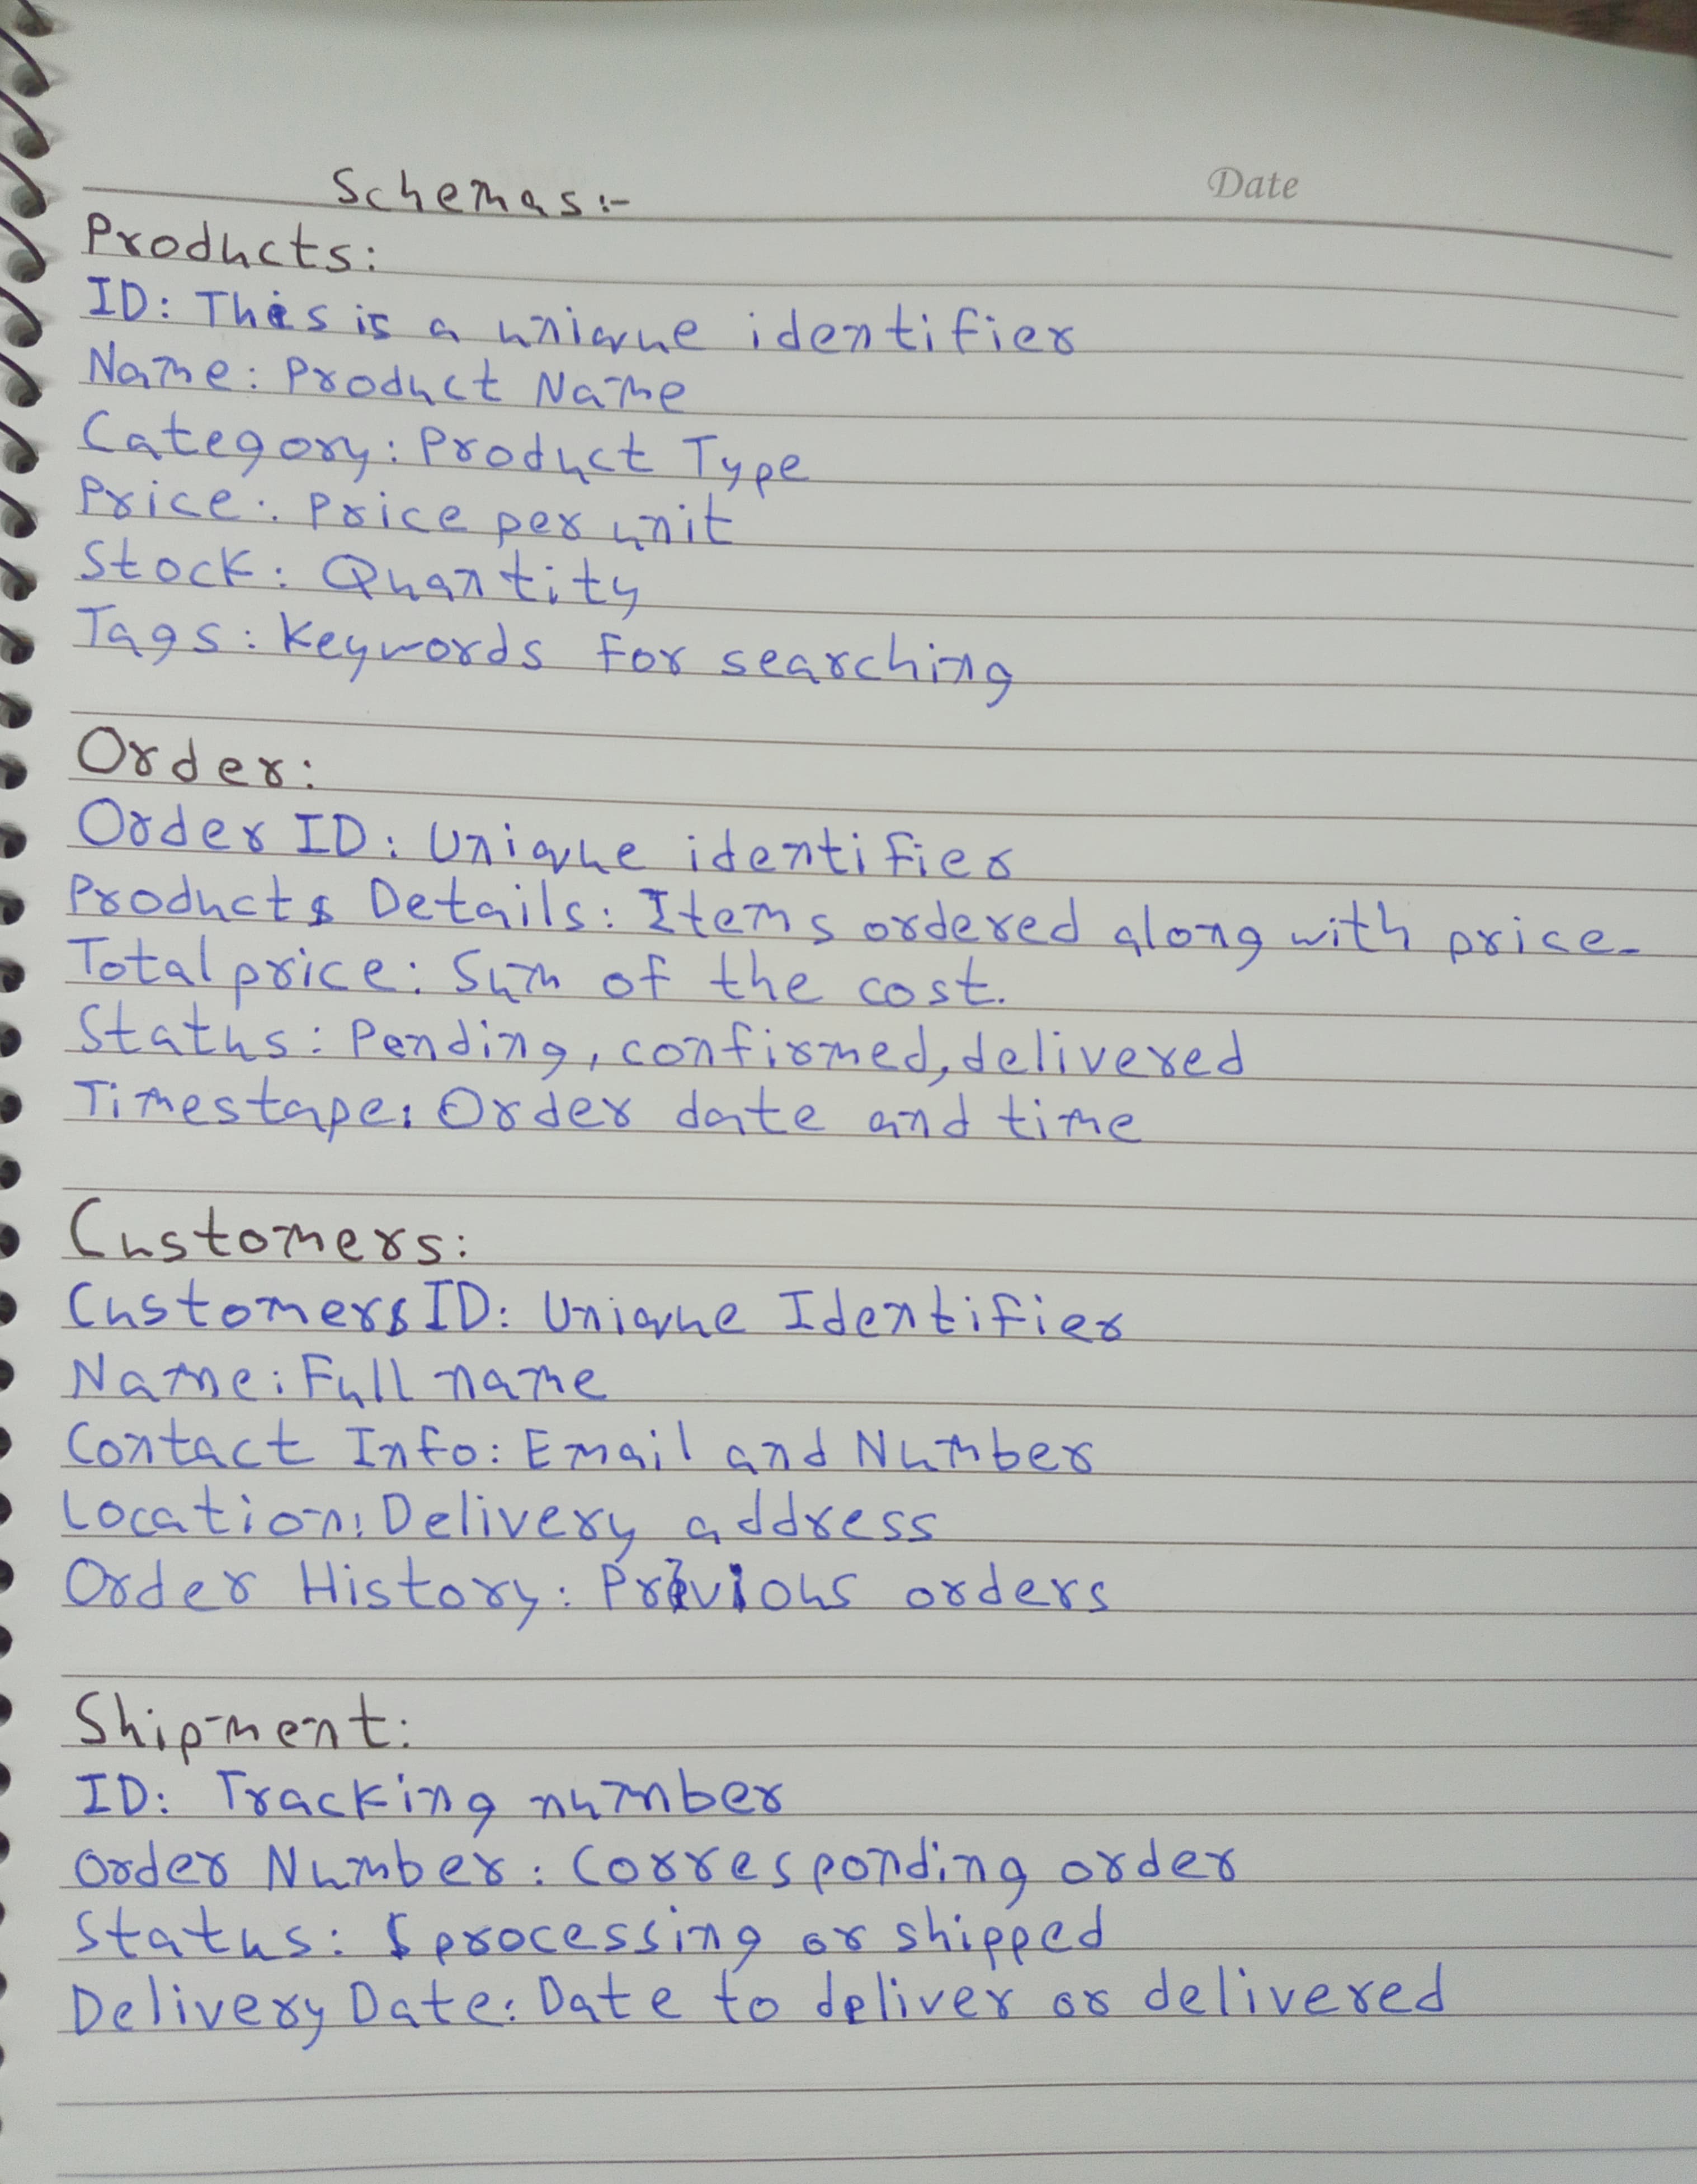 Date
Schemas:-
Products:
ID: This is a unique identifier
Name: Product Name
Category: Product Type
Price: Price per unit
Stock: Quantity
Tags: Keywords for searching
Order:
Order ID: Unique identifier
Products Details: Items ordered along with price.
Total price: Sum of the cost.
Status: Pending, confirmed, delivered
Timestape: Order date and time
Customers:
Customers ID: Unique Identifier
Name: Full name
Contact Info: Email and Number
Location: Delivery address
Order History: Privious orders
Shipment:
ID: Tracking number
Order Number: Corresponding order
Status: processing or shipped
Delivery Date: Date to deliver or delivered